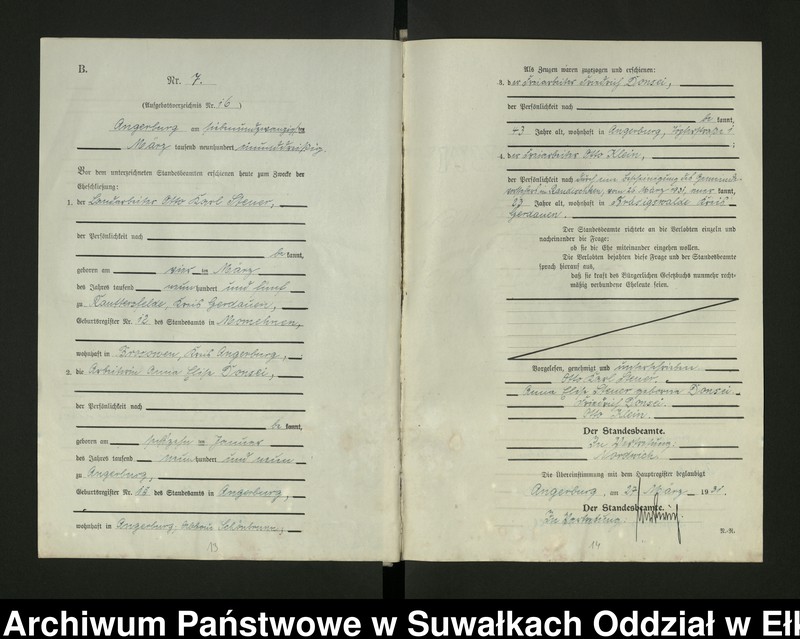 B.
Nr. 7.
(Aufgebotsverzeichnis Nr. 16)
Angerburg am siebenundzwanzigsten
März tausend neunhundert einunddreißig.
Vor dem unterzeichneten Standesbeamten erschienen heute zum Zwecke der
Eheschließung:
1. der Landarbeiter Otto Karl Steuer,
der Persönlichkeit nach
bekannt,
geboren am vier ten März
des Jahres tausend neunhundert und fünf
zu Kreis Gerdauen,
Geburtsregister Nr. 12 des Standesamts in Momehnen,
wohnhaft in Brosowen, Kreis Angerburg,
2. die Arbeiterin Anna Elise Donsei,
der Persönlichkeit nach
bekannt,
geboren am Januar
des Jahres tausend neunhundert und neun
zu Angerburg,
Geburtsregister Nr. 16 des Standesamts in Angerburg,
wohnhaft in Angerburg,
13
Als Zeugen waren zugezogen und erschienen:
3. der Friedrich Donsei,
der Persönlichkeit nach
bekannt,
43 Jahre alt, wohnhaft in Angerburg,
4. der Otto Klein,
der Persönlichkeit nach durch eine Bescheinigung des Gemeinde-
vom 26. März 1931, anerkannt,
27 Jahre alt, wohnhaft in Bräsigswalde Kreis
Gerdauen.
Der Standesbeamte richtete an die Verlobten einzeln und
nacheinander die Frage:
ob sie die Ehe miteinander eingehen wollen.
Die Verlobten bejahten diese Frage und der Standesbeamte
sprach hierauf aus,
daß sie kraft des Bürgerlichen Gesetzbuchs nunmehr recht-
mäßig verbundene Eheleute seien.
Vorgelesen, genehmigt und unterschrieben
Otto Karl Steuer.
Anna Elise Steuer geborene Donsei.
Friedrich Donsei.
Otto Klein.
Der Standesbeamte.
In Vertretung:
Die Übereinstimmung mit dem Hauptregister beglaubigt
Angerburg, am 27. März 1931.
Der Standesbeamte.
In Vertretung:
N.-R.
14
Archiwum Państwowe w Suwałkach Oddział w Ełk